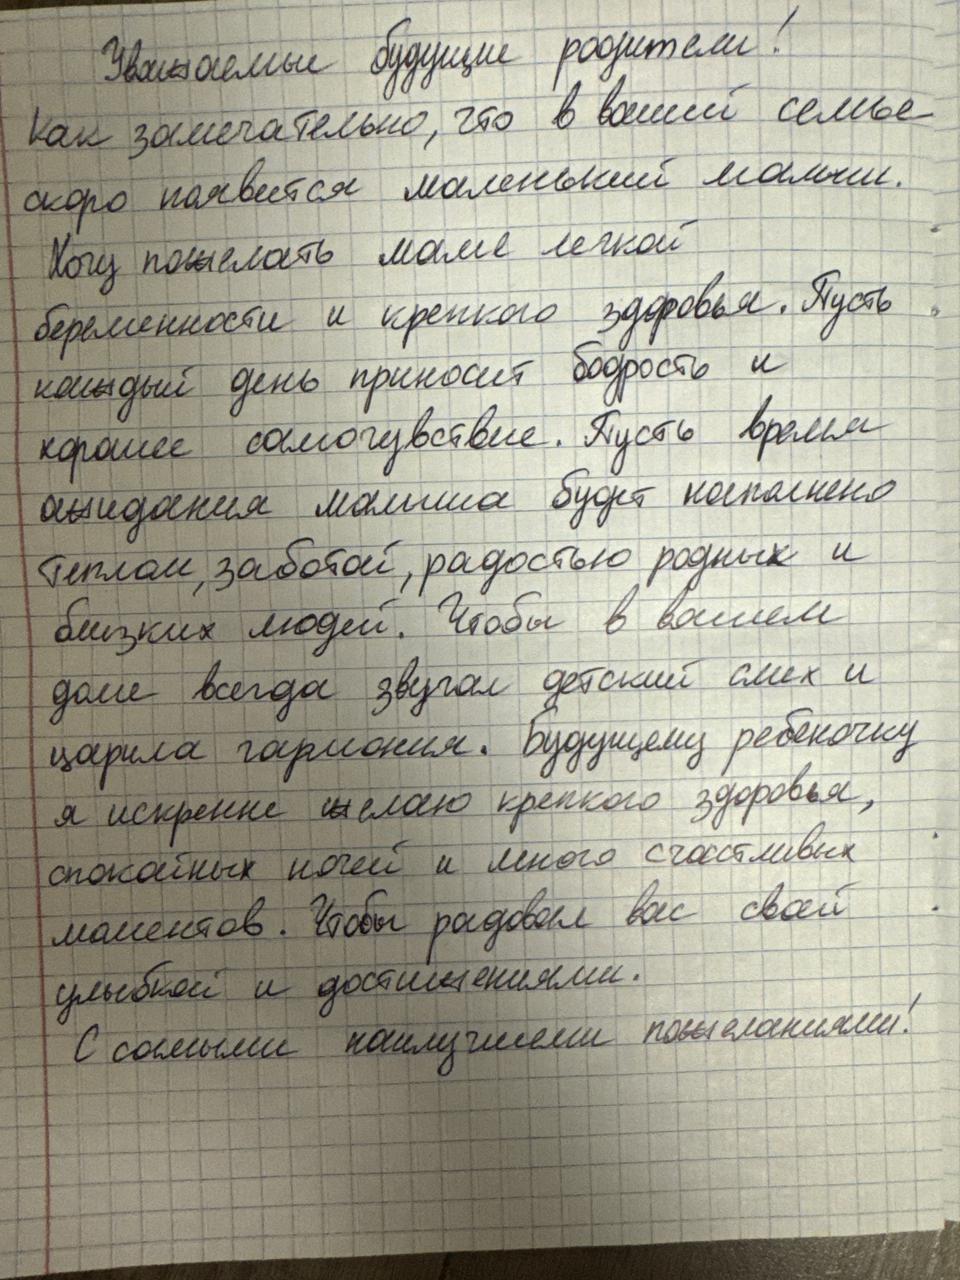 Уважаемые будущие родители!
Как замечательно, что в вашей семье
скоро появится маленький малыш.
Хочу пожелать маме легкой
беременности и крепкого здоровья. Пусть
каждый день приносит бодрость и
хорошее самочувствие. Пусть время
ожидания малыша будет наполнено
теплом, заботой, радостью родных и
близких людей. Чтобы в вашем
доме всегда звучал детский смех и
царила гармония. Будущему ребеночку
я искренне желаю крепкого здоровья,
спокойных ночей и много счастливых
моментов. Чтобы радовал вас своей
улыбкой и достижениями.
С самыми наилучшими пожеланиями!